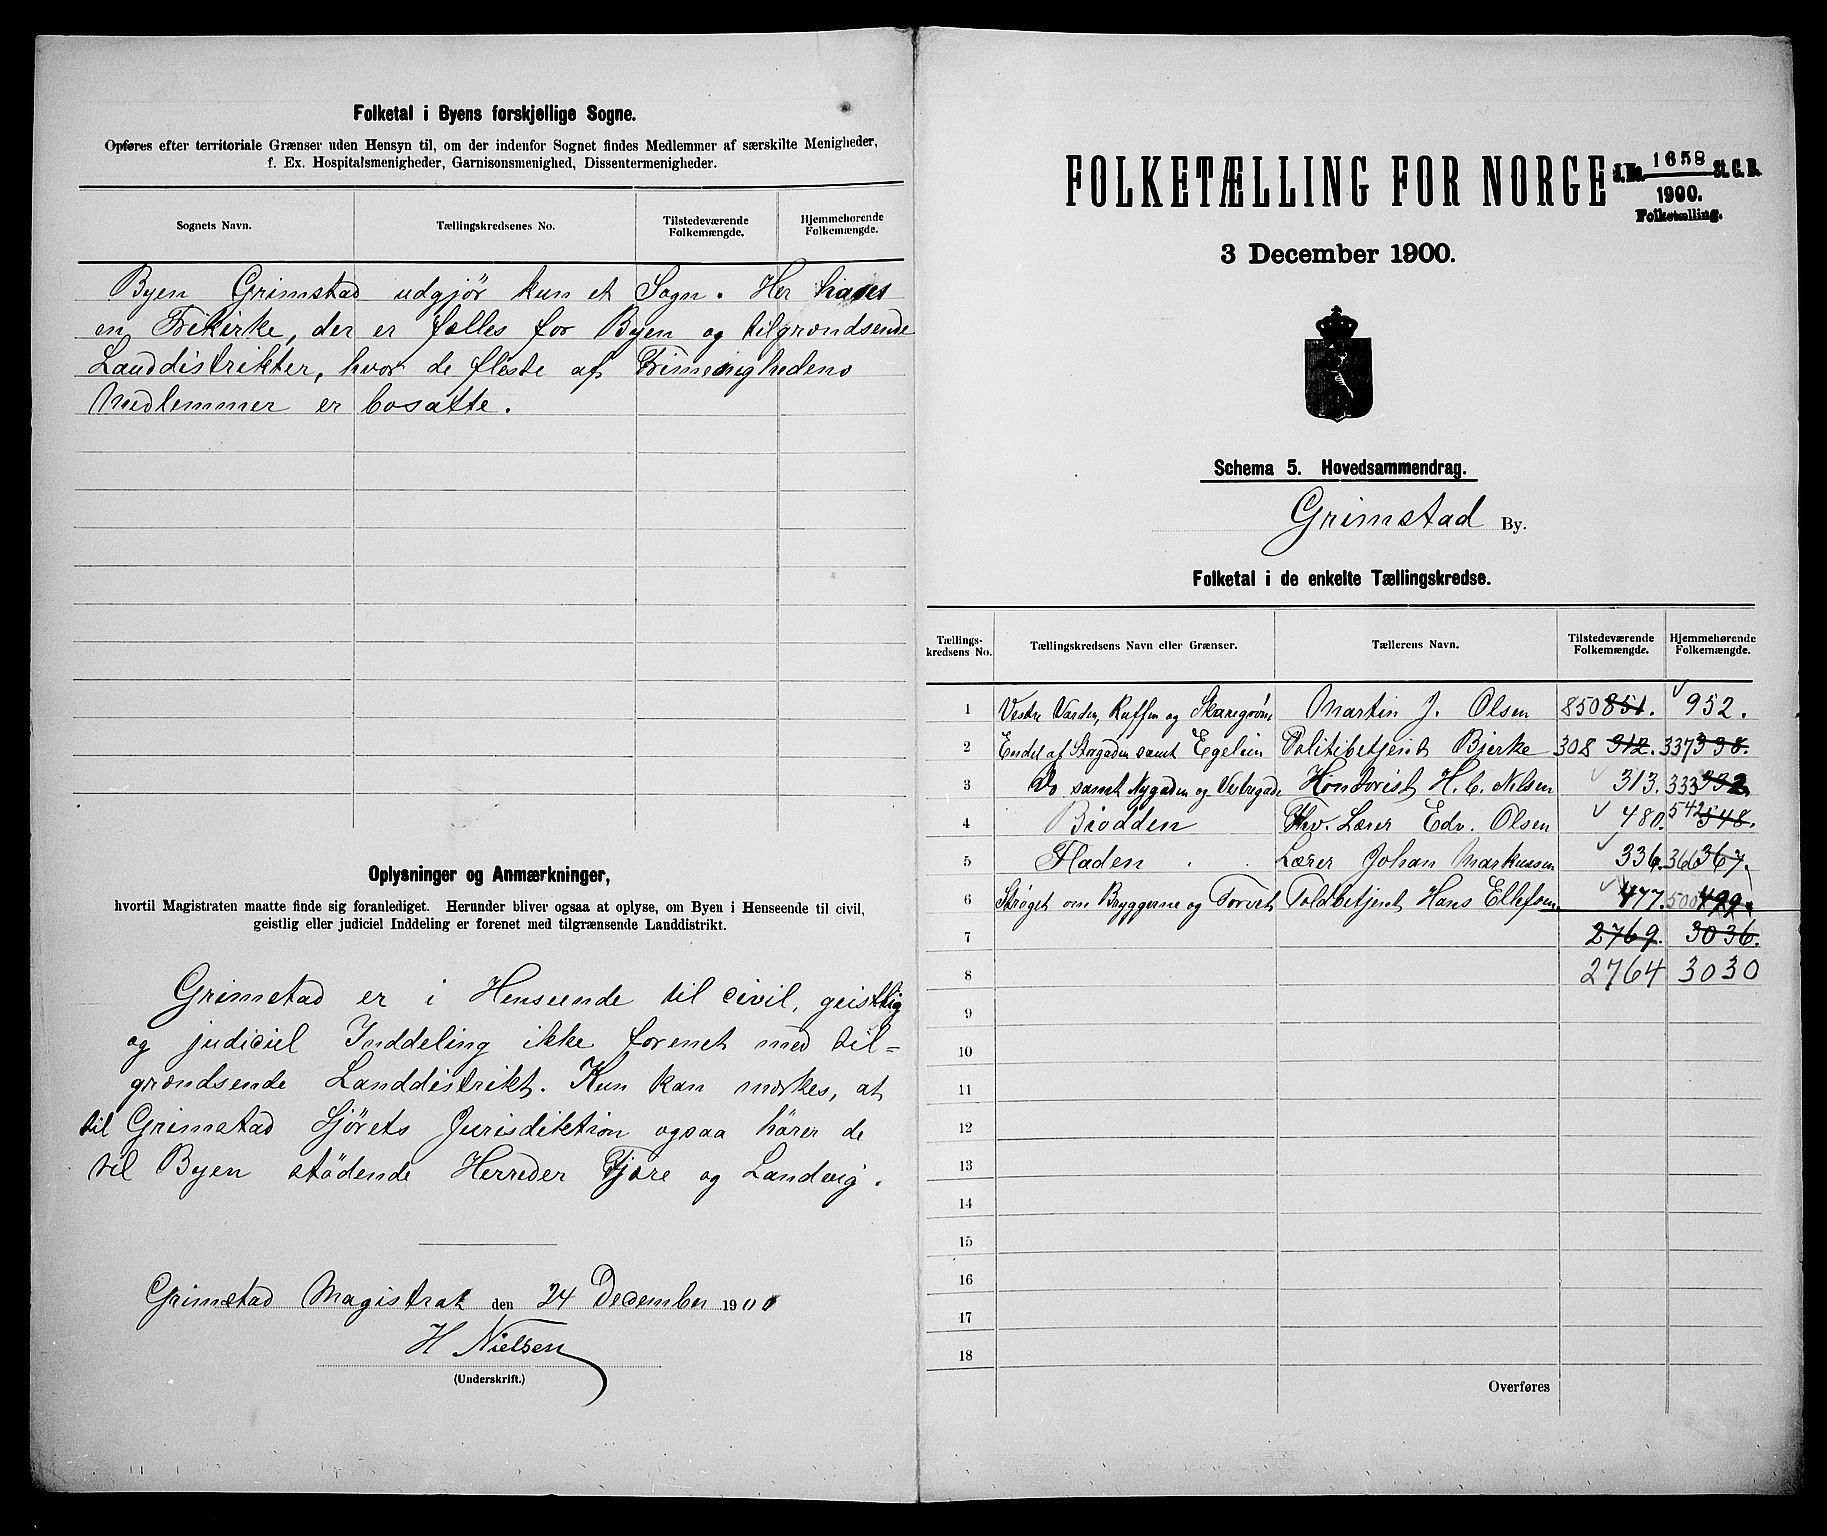 Folketal i Byens forskjellige Sogne.
Opføres efter territoriale Grænser uden Hensyn til, om der indenfor Sognet findes Medlemmer af særskilte Menigheder,
f. Ex. Hospitalsmenigheder, Garnisonsmenighed, Dissentermenigheder.
Sognets Navn. Tællingskredsenes No. Tilstedeværende Folkemængde. Hjemmehørende Folkemængde.
Byen Grimstad udgjør kun et Sogn. Her haves
en Frikirke, der er fælles for Byen og tilgrændsende
Landdistrikter, hvor de fleste af Frimenighedens
Medlemmer er bosatte.
Oplysninger og Anmærkninger,
hvortil Magistraten maatte finde sig foranlediget. Herunder bliver ogsaa at oplyse, om Byen i Henseende til civil,
geistlig eller judiciel Inddeling er forenet med tilgrænsende Landdistrikt.
Grimstad er i Henseende til civil, geistlig
og judiciel Inddeling ikke forenet med til-
grændsende Landdistrikt. Kun kan mærkes, at
til Grimstad Sjørets Jurisdiktion ogsaa hører de
til Byen stødende Herreder Fjære og Landvig.
Grimstad Magistrat den 24 December 1900
H Nielsen
(Underskrift.)
FOLKETÆLLING FOR NORGE
J. No. 1658 St. C. B.
1900.
Folketælling.
3 December 1900.
Schema 5. Hovedsammendrag.
Grimstad By.
Folketal i de enkelte Tællingskredse.
Tællings-kredsens No. Tællingskredsens Navn eller Grænser. Tællerens Navn. Tilstedeværende Folkemængde. Hjemmehørende Folkemængde.
1 Vestre Varden, og Martin J. Olsen 850 851. 952.
2 Endel af Storgaden samt Politibetjent Bjerke 308 312. 337 338.
3 Do samt Nygaden og Vestregade H. C. Nilsen 313. 333 332
4 Biodden Lærer Edv. Olsen 480. 542 548.
5 Fladen Lærer Johan Markussen 336. 366 367.
6 Strøget om Bryggerne og Torvet Toldbetjent Hans Ellefsen. 477. 500 499.
7 2769. 3036.
8 2764 3030
9
10
11
12
13
14
15
16
17
18
Overføres